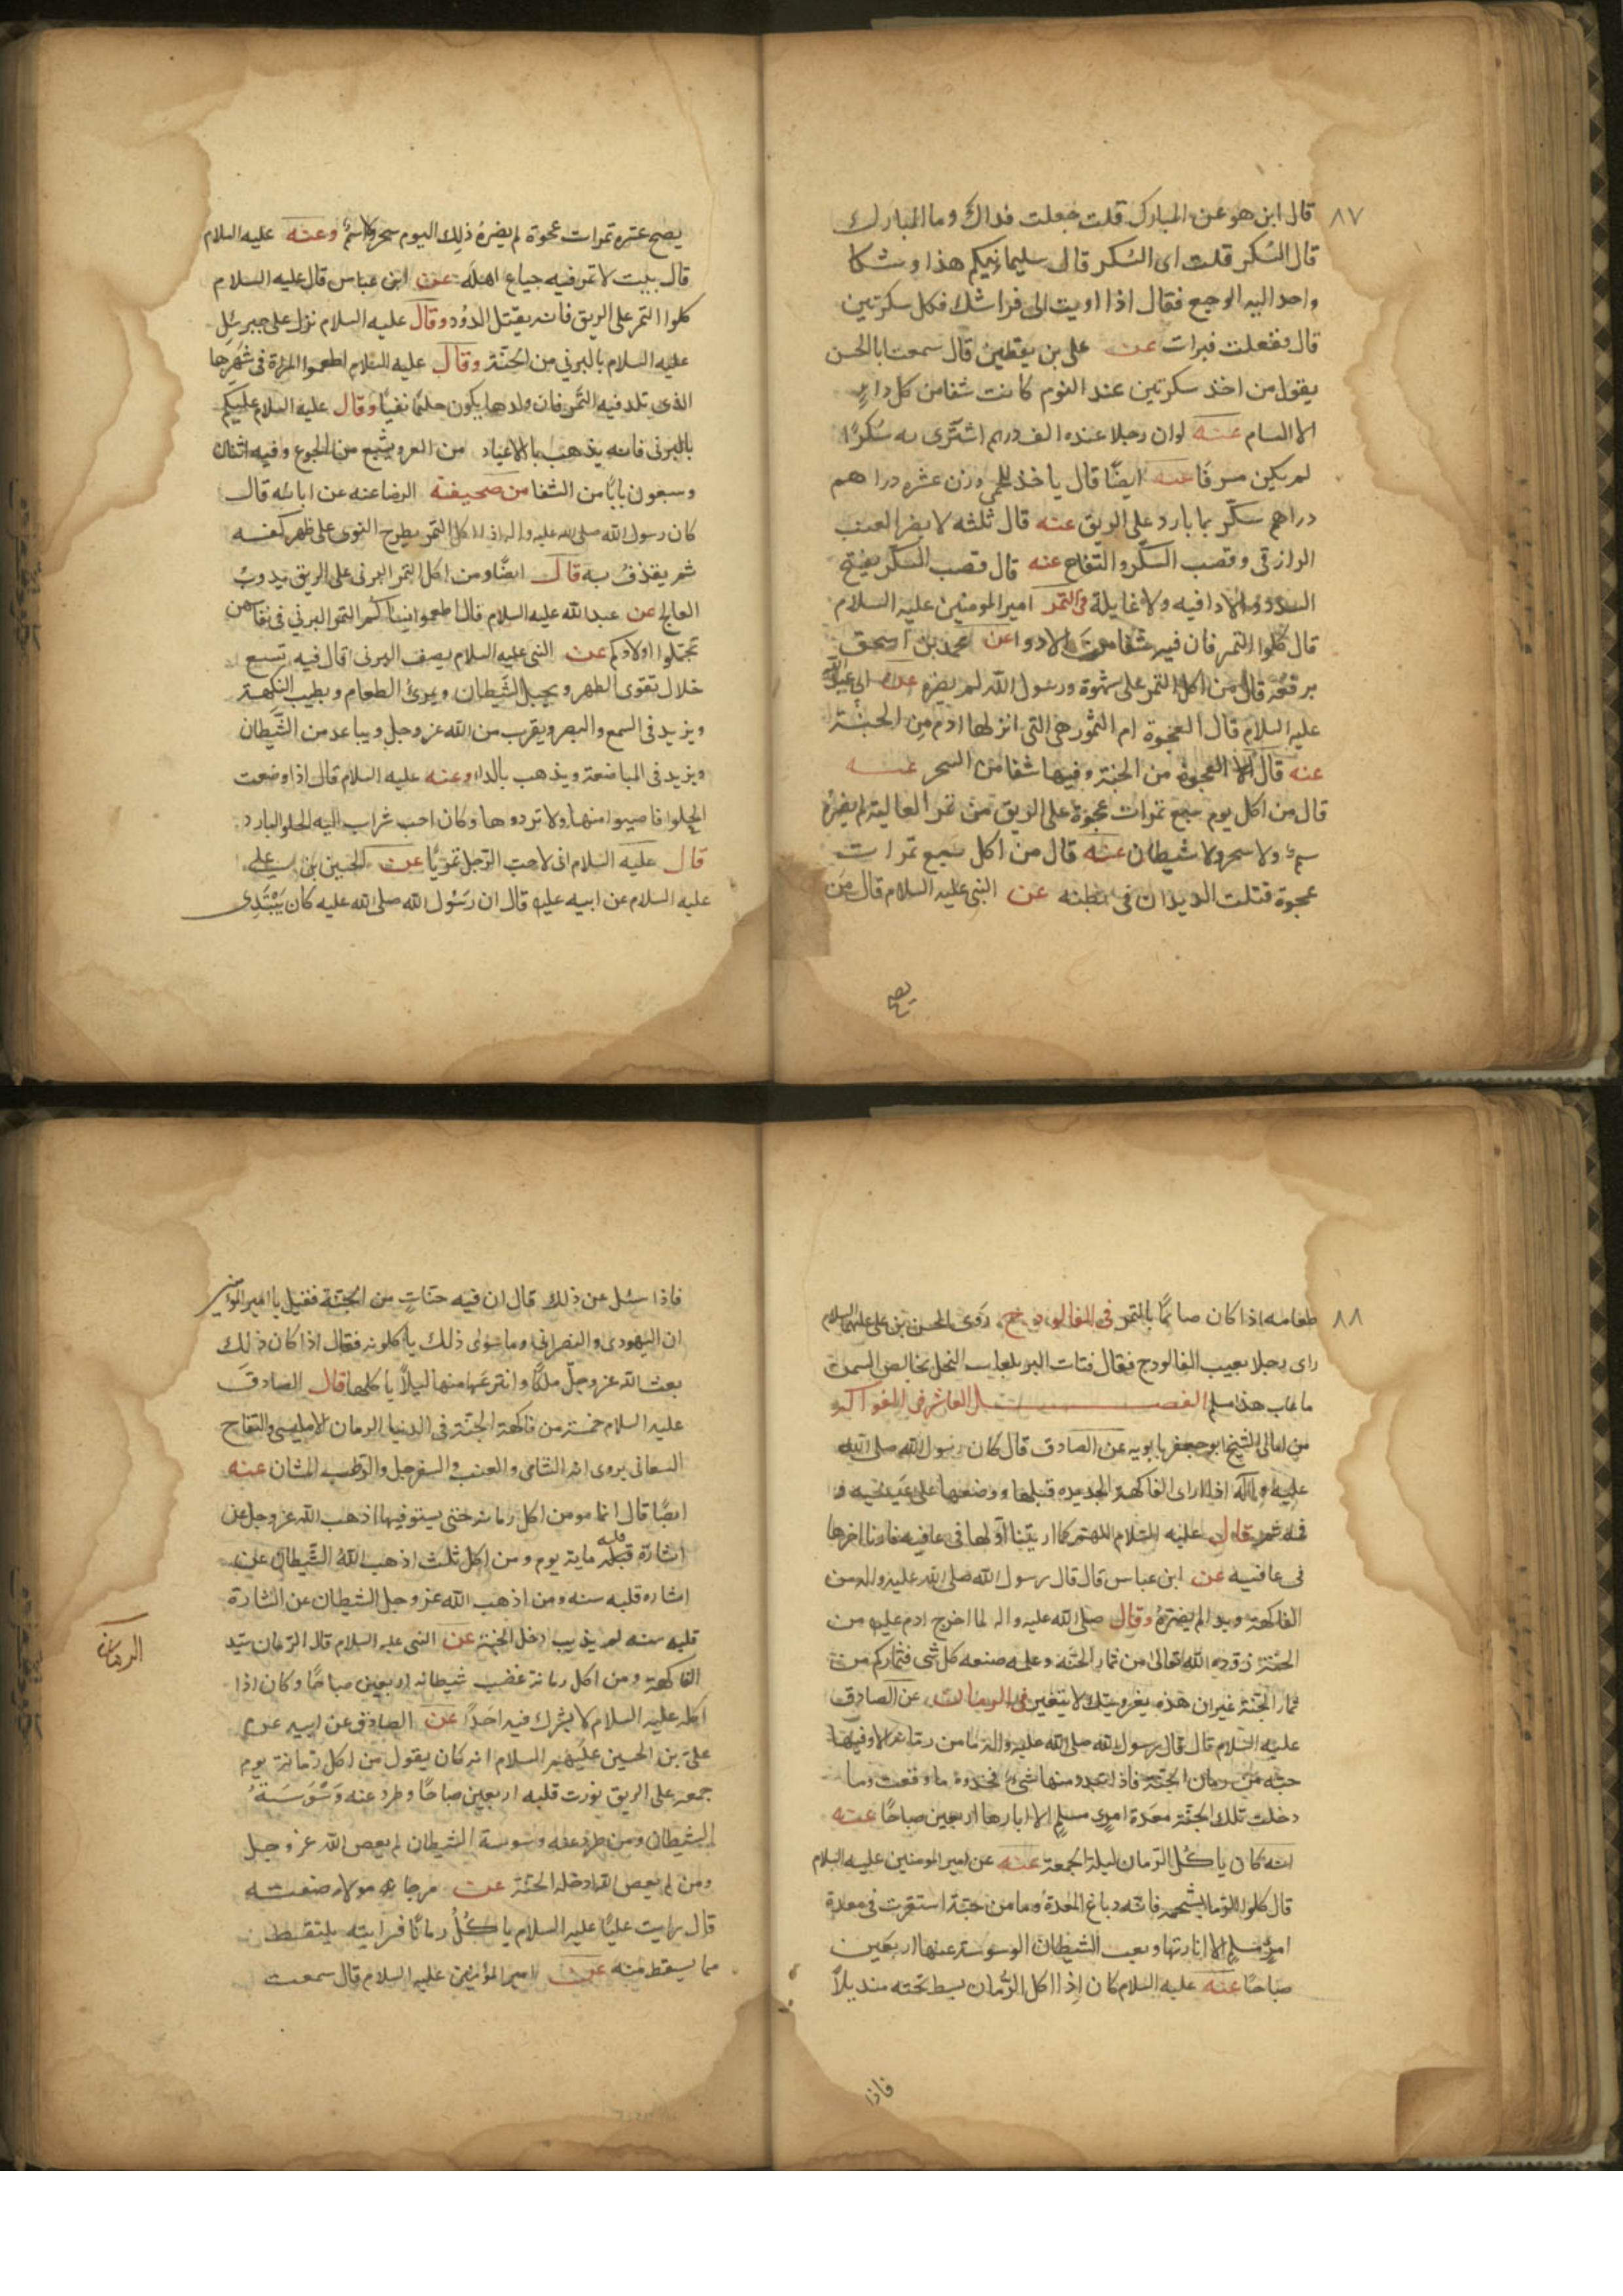 ٨٧
قال ابن هو عن المبارك قلت جعلت فداك وما المبارك
قال السكر قلت اى السكر قال سليمانيكم هذا وشكا
واحد اليه الوجع فقال اذا اويت الى فراشك فكل سكرتين
قال ففعلت فبرات عن على بن يقطين قال سمعت ابا الحسن
يقول من اخذ سكرتين عند النوم كانت شفا من كل داء
الا السام عنه لو ان رجلا عنده الف درهم اشترى به سكرًا
لم يكن مسرفًا عنه ايضًا قال ياخذ للحمى وزن عشره دراهم
دراهم سكّر بما بارد على الريق عنه قال ثلثه لا يضر العنب
الرازقى وقصب السكّر والتفاح عنه قال قصب السكّر يفتح
السدد ولا دا فيه ولا غايلة فى التمر امير المومنين عليه السلام
قال كلوا التمر فان فيه شفا من الادوا عن محمد بن اسحق
برفعه قال من اكل التمر على شهوة رسول الله لم يضره عن ابى عبد الله
عليه السلام قال العجوة ام التمور هى التى انزلها ادم من الجنة
عنه قال العجوة من الجنة وفيها شفا من السحر عنه
قال من اكل يوم سبع تمرات عجوة على الريق من تمر العالية لم يضره
سمّ ولا سحر ولا شيطان عنه قال من اكل سبع تمرات
عجوة قتلت الديدان فى بطنه عن النبى عليه السلام قال من
يصبح
يصبح عشره تمرات عجوة لم يضره ذلك اليوم سحر ولا سمّ وعنه عليه السلام
قال بيت لا تمر فيه جياع اهله عن ابن عباس قال عليه السلام
كلوا التمر على الريق فانه يقتل الدود وقال عليه السلام نزل على جبرئل
عليه السلام بالبرني من الجنّة وقال عليه السلام اطعموا المراة فى شهرها
الذى تلد فيه التمر فان ولدها يكون حليمًا نقيًا وقال عليه السلام عليكم
بالبرنى فانه يذهب بالاعياد من العرو يشبع من الجوع وفيه اثنان
وسبعون بابًا من الشفا من صحيفة الرضا عنه عن ابائه قال
كان رسول الله صلى الله عليه واله اذا اكل التمر يطرح النوى على ظهر كفه
ثم يقذف به قال ايضًا ومن اكل التمر البرنى على الريق
العالج عن عبد الله عليه السلام قال اطعموا نسائكم التمر البرني فى نفاسهن
تجملوا اولادكم عن النبى عليه السلام يصف البرنى قال فيه تسع
خلال تقوى الظهر ويخبل الشيطان ويمرئ الطعام ويطيب النكهة
ويزيد فى السمع والبصر ويقرب من الله عز وجل ويباعد من الشّيطان
ويزيد فى المباضعة ويذهب بالداء وعنه عليه السلام قال اذا وضعت
الحلوا فاصيبوا منها ولا تردوها وكان احب شراب اليه الحلو البارد
قال عليه السلام انى لاحب الرّجل تمريًا عن الحسين بن على
عليه السلام عن ابيه عليه قال ان رسول الله صلى الله عليه كان يبتدى
٨٨
طعامه اذا كان صائمًا بالتمر فى الفالوذج روى الحسن بن على عليهما السلام
راى رجلا يعيب الفالوذج فقال فتات البر بلعاب النحل بخالص السمن
ما عاب هذا مسلم الفصل العاشر فى الفواكه
من امالى الشيخ ابو جعفر بابويه عن الصادق قال كان رسول الله صلى الله
عليه واله اذا راى الفاكهة الجديده قبلها ووضعها على عينيه و
فمه ثم قال عليه السلام اللهم كما اريتنا اولها فى عافيه فارنا اخرها
فى عافيه عن ابن عباس قال قال رسول الله صلى الله عليه واله من
الفاكهة لم يضره وقال صلى الله عليه واله لما اخرج ادم عليه من
الجنّة زوّده الله تعالى من ثمار الجنّة وعلمه صنعه كل شى فثماركم من
ثمار الجنّة غير ان هذه يتغير وتلك لا يتغير فى الرمان عن الصادق
عليه السّلام قال قال رسول الله صلى الله عليه واله ما من رمانة الا وفيها
حبّه من رمان الجنّة فاذا منها شىء فخذوه ما وقعت وما
دخلت تلك الجنّة معدة امرئ مسلم الا انارها اربعين صباحًا عنه
انه كان ياكل الرّمان ليلة الجمعة عنه عن امير المومنين عليه السلام
قال كلوا الرّمان بشحمه فانّه دباغ المعدة وما من حبّة استقرت فى معدة
امرئ مسلم الا انارتها الشيطان الوسوسة عنها اربعين
صباحًا عنه عليه السلام كان اذا اكل الرّمان بسط تحته منديلاً
فاذا
فاذا سئل عن ذلك قال ان فيه حبّات من الجنّة فقيل يا امير المؤمنين
ان اليهودى والنصرانى وما سوى ذلك ياكلونه فقال اذا كان ذلك
بعث الله عز وجلّ ملكًا وانتزعها منها ليلاً ياكلها قال الصادق
عليه السلام خمسة من فاكهة الجنّة فى الدنيا الرمان الامليسى والتفاح
يروى انه الشامى والعنب والسفرجل والرّطب المشان عنه
ايضًا قال ايما مومن اكل رمانة حتى يستوفيها اذهب الله عز وجل عن
اشارة قلبه ماية يوم ومن اكل ثلث اذهب الله الشّيطان عن
اشاره قلبه سنه ومن اذهب الله عز وجل الشيطان عن اشارة
قلبه سنه لم يذنب ادخل الجنة عن النبى عليه السلام قال الرّمان سيّد
الفاكهة ومن اكل رمانة غضب شيطانه اربعين صباحًا وكان اذا
اكله عليه السلام لا يشرك فيه احدًا عن الصادق عن ابيه عن
على بن الحسين عليهم السلام انه كان يقول من اكل رمانة يوم
جمعه على الريق نورت قلبه اربعين صباحًا وطرد عنه وسوسة
الشيطان ومن طرد عنه وسوسة الشيطان لم يعص الله عز وجل
ومن لم يعص الله ادخله الجنّة عن مرجانه مولاه صفيه
قال رايت عليًا عليه السلام ياكل رمانًا فرايته يلتقط
مما يسقط منه عن امير المؤمنين عليه السلام قال سمعت
الرمان